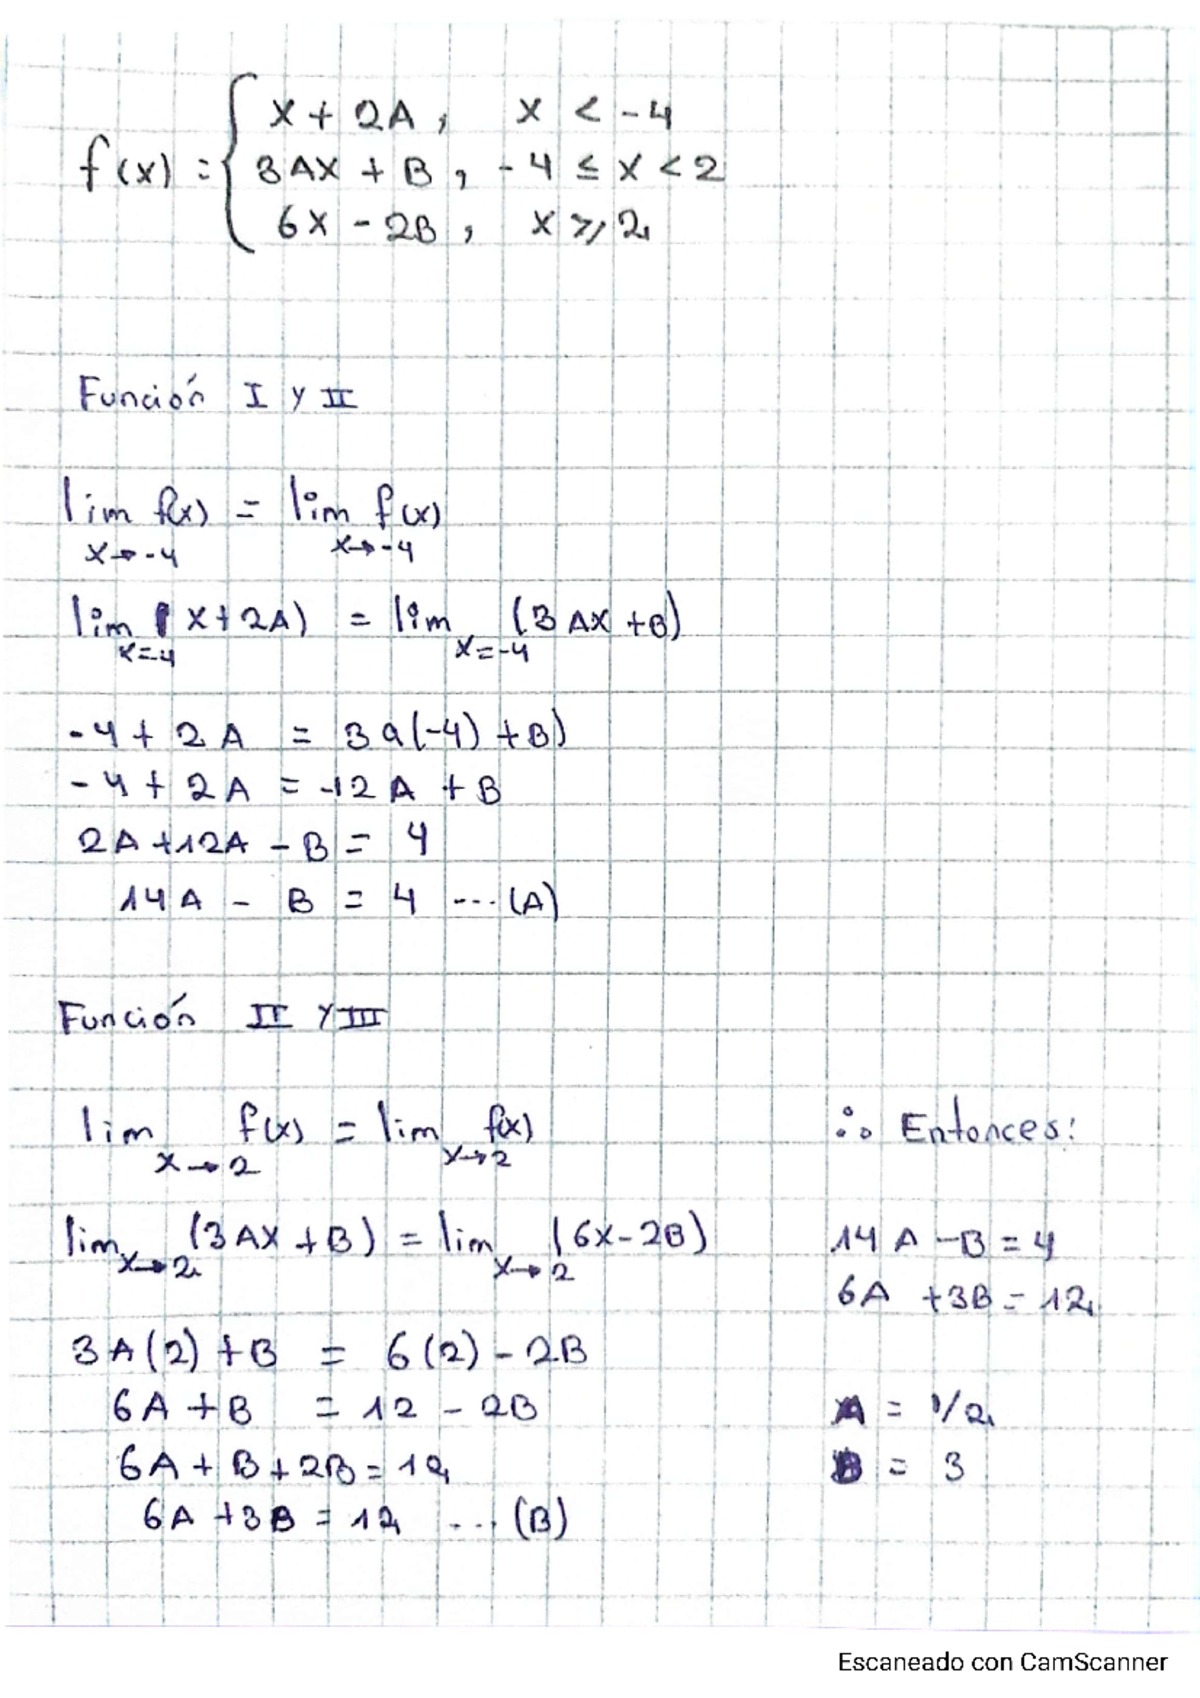 f(x) = { x + 2A, x < -4
3Ax + B, -4 ≤ x < 2
6x - 2B, x ≥ 2
Función I y II
lim f(x) = lim f(x)
x→-4 x→-4
lim (x+2A) = lim (3Ax+B)
x=-4 x=-4
-4 + 2A = 3a(-4) + B)
-4 + 2A = -12A + B
2A+12A - B = 4
14A - B = 4 ... (A)
Función II y III
lim f(x) = lim f(x)
x→2 x→2
lim (3Ax+B) = lim (6x-2B)
x→2 x→2
3A(2) + B = 6(2) - 2B
6A + B = 12 - 2B
6A + B + 2B = 12
6A + 3B = 12 ... (B)
∴ Entonces:
14A - B = 4
6A + 3B = 12
A = 1/2
B = 3
Escaneado con CamScanner